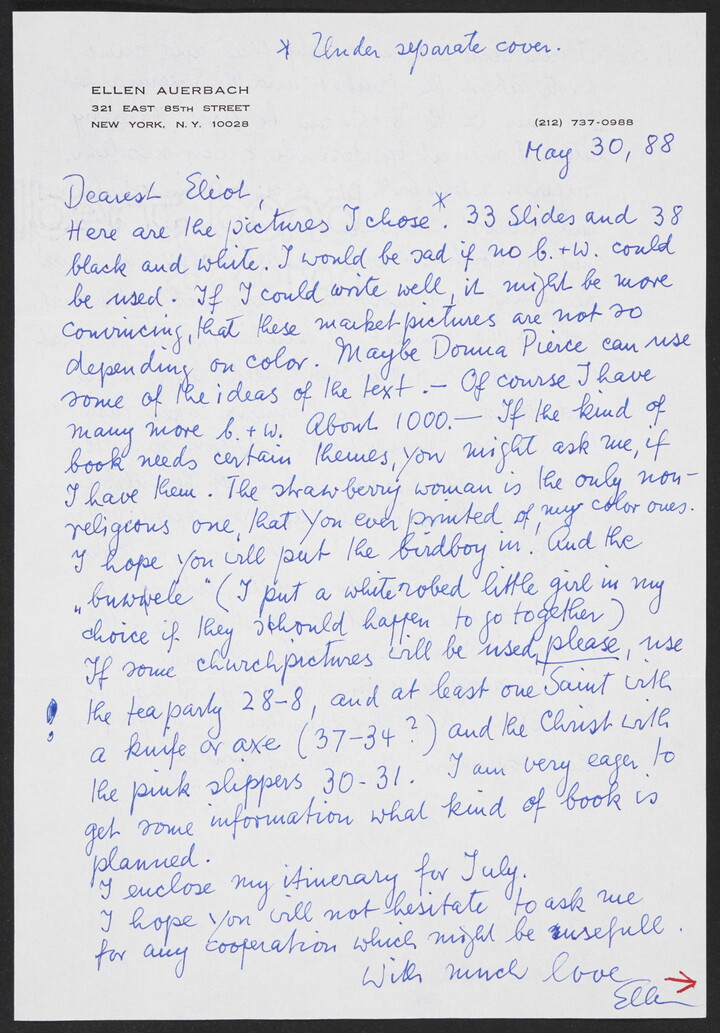 * Under separate cover.
ELLEN AUERBACH
321 EAST 85TH STREET
NEW YORK, N.Y. 10028
(212) 737-0988
May 30, 88
Dearest Eliot,
Here are the pictures I chose*. 33 Slides and 38
black and white. I would be sad if no b.+w. could
be used. If I could write well, it might be more
convincing, that these marketpictures are not so
depending on color. Maybe Donna Pierce can use
some of the ideas of the text. — Of course I have
many more b.+w. About 1000. — If the kind of
book needs certain themes, you might ask me, if
I have them. The strawberry woman is the only non-
religious one, that you ever printed of my color ones.
I hope you will put the birdboy in! And the
"buwwele" (I put a whiterobed little girl in my
choice if they should happen to go together)
If some churchpictures will be used, please, use
the teaparty 28-8, and at least one Saint with
a knife or axe (37-34?) and the Christ with
the pink slippers 30-31. I am very eager to
get some information what kind of book is
planned.
I enclose my itinerary for July.
I hope you will not hesitate to ask me
for any cooperation which might be usefull.
With much love
Ellen